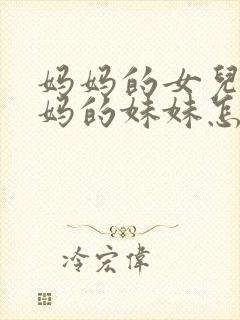 妈妈的女兒
妈的妹妹怎
冷宏偉